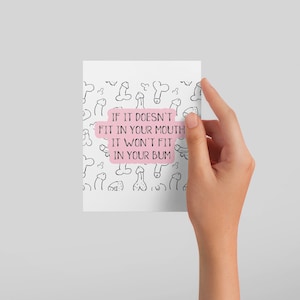 IF IT DOESN'T
FIT IN YOUR MOUTH
IT WON'T FIT
IN YOUR BUM